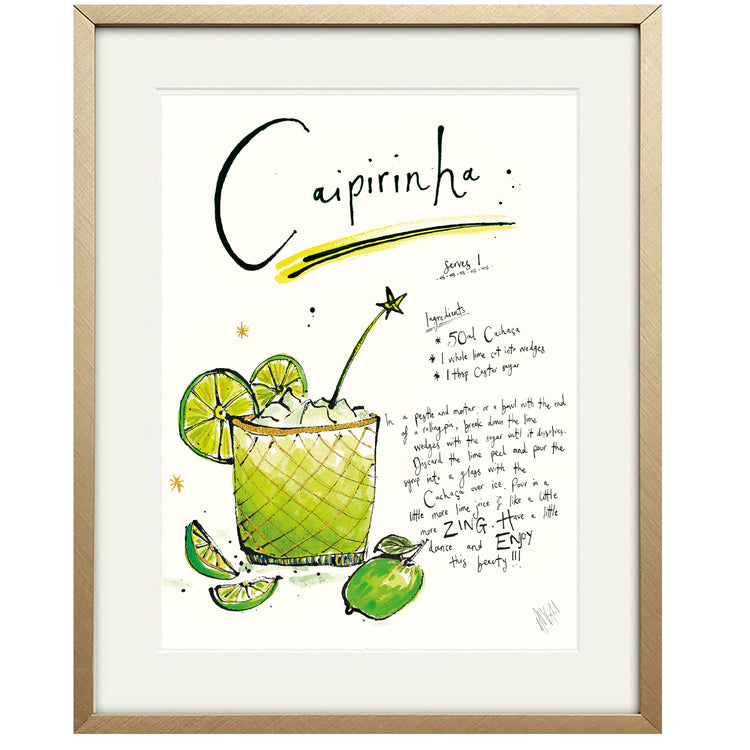 Caipirinha
serves 1
Ingredients
* 50ml Cachaça
* 1 whole lime cut into wedges
* 1 tbsp Caster sugar
In a pestle and mortar, or a bowl with the end
of a rolling pin, break down the lime
wedges with the sugar until it dissolves.
Discard the lime peel and pour the
syrup into a glass with the
Cachaça over ice. Pour in a
little more lime juice if like a little
more ZING. Have a little
dance and ENJOY
this beauty!!!